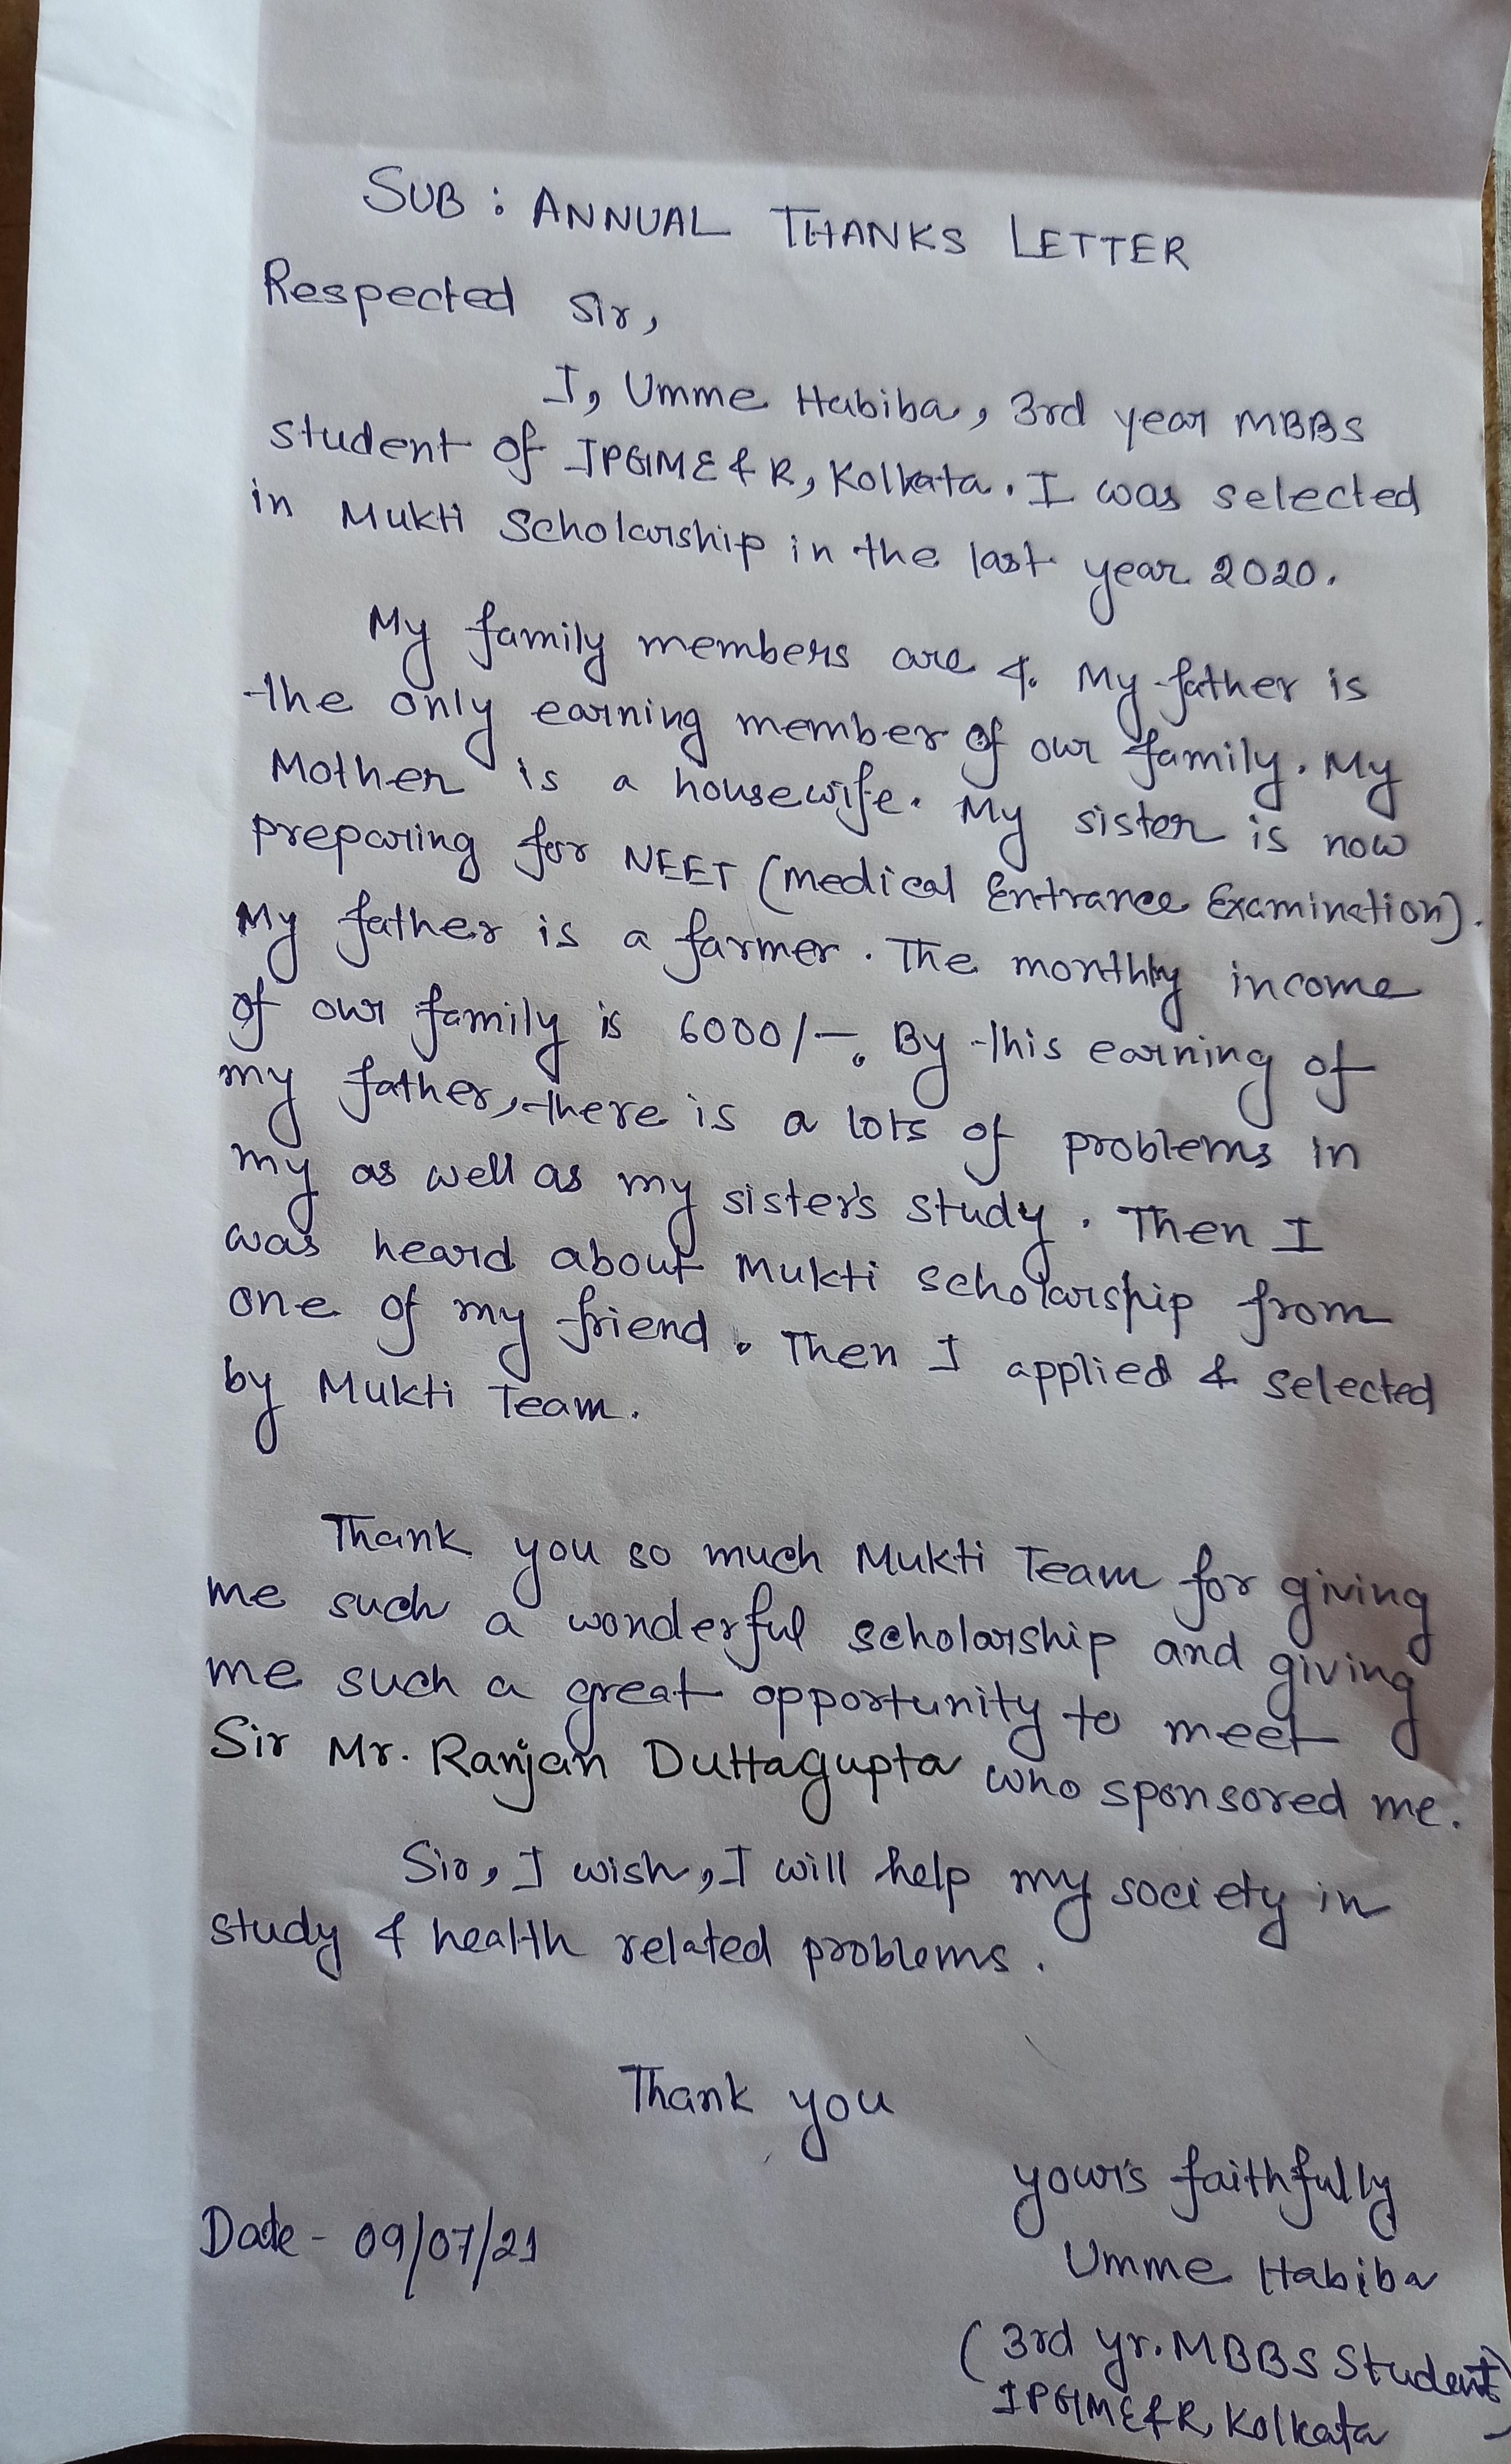 SUB : ANNUAL THANKS LETTER
Respected Sir,
I, Umme Habiba, 3rd year MBBS
student of IPGIME&R, Kolkata. I was selected
in Mukti Scholarship in the last year 2020.
My family members are 4. My father is
the only earning member of our family. My
Mother is a housewife. My sister is now
preparing for NEET (Medical Entrance Examination).
My father is a farmer. The monthly income
of our family is 6000/-. By this earning of
my father, there is a lots of problems in
my as well as my sister's study. Then I
was heard about Mukti scholarship from
one of my friend. Then I applied & selected
by Mukti Team.
Thank you so much Mukti Team for giving
me such a wonderful scholarship and giving
me such a great opportunity to meet
Sir Mr. Ranjan Duttagupta who sponsored me.
Sir, I wish, I will help my society in
study & health related problems.
Thank you
your's faithfully
Date - 09/07/21
Umme Habiba
(3rd yr. MBBS Student
IPGIME&R, Kolkata)